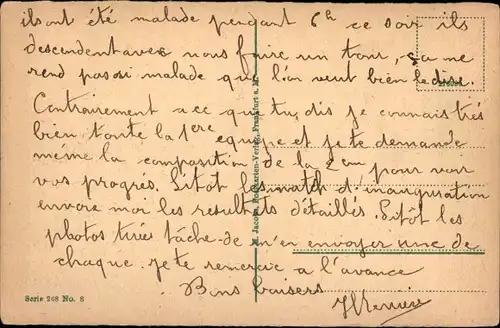 ils ont été malade pendant 6h ce soir ils
descendent avec nous faire un tour, ça me
rend pas si malade que l'on veut bien le dire.
Contrairement a ce que tu dis je connais très
bien toute la 1ere equipe et je te demande
même la composition de la 2em pour voir
vos progrés. Sitôt les match d'inauguration
envoie moi les resultats détaillés. Sitôt les
photos tirés tâche de m'en envoyer une de
chaque. je te remercie a l'avance
Bons baisers
Serie 248 No. 8